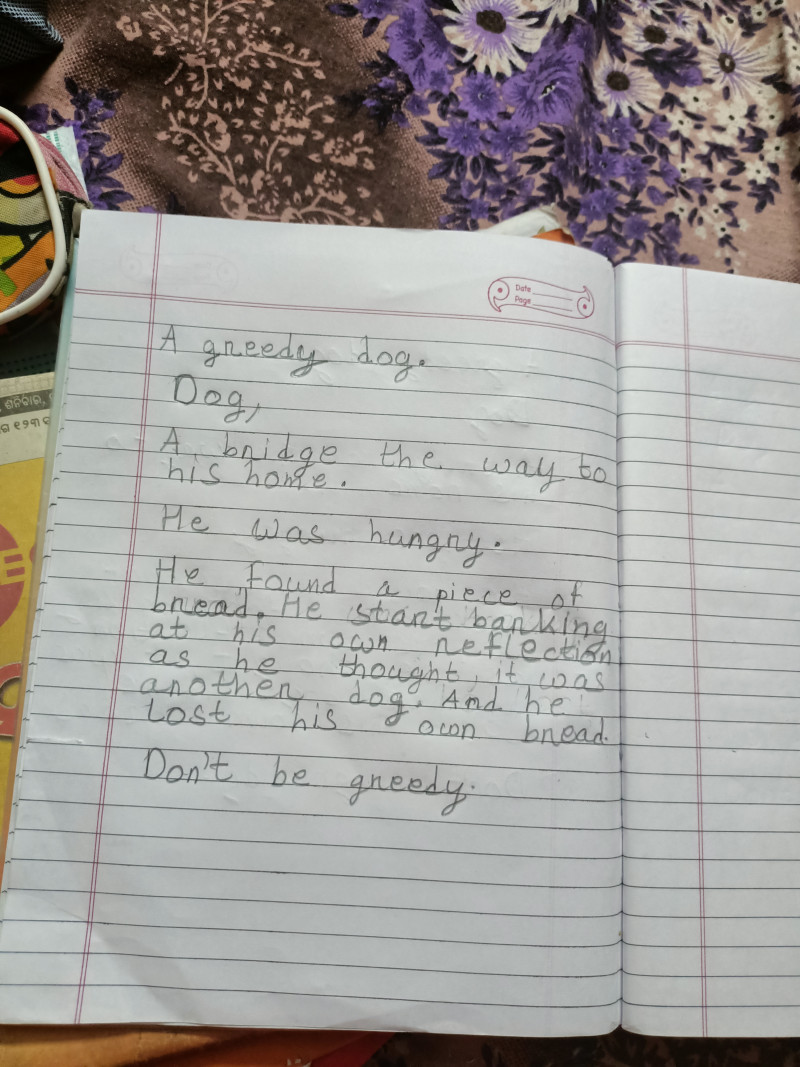 Date
Page
A greedy dog.
Dog,
A bridge the way to
his home.
He was hungry.
He found a piece of
bread. He start barking
at his own reflection
as he thought, it was
another dog. And he
Lost his own bread.
Don't be greedy.
ଶନିବାର,
୧୨୩